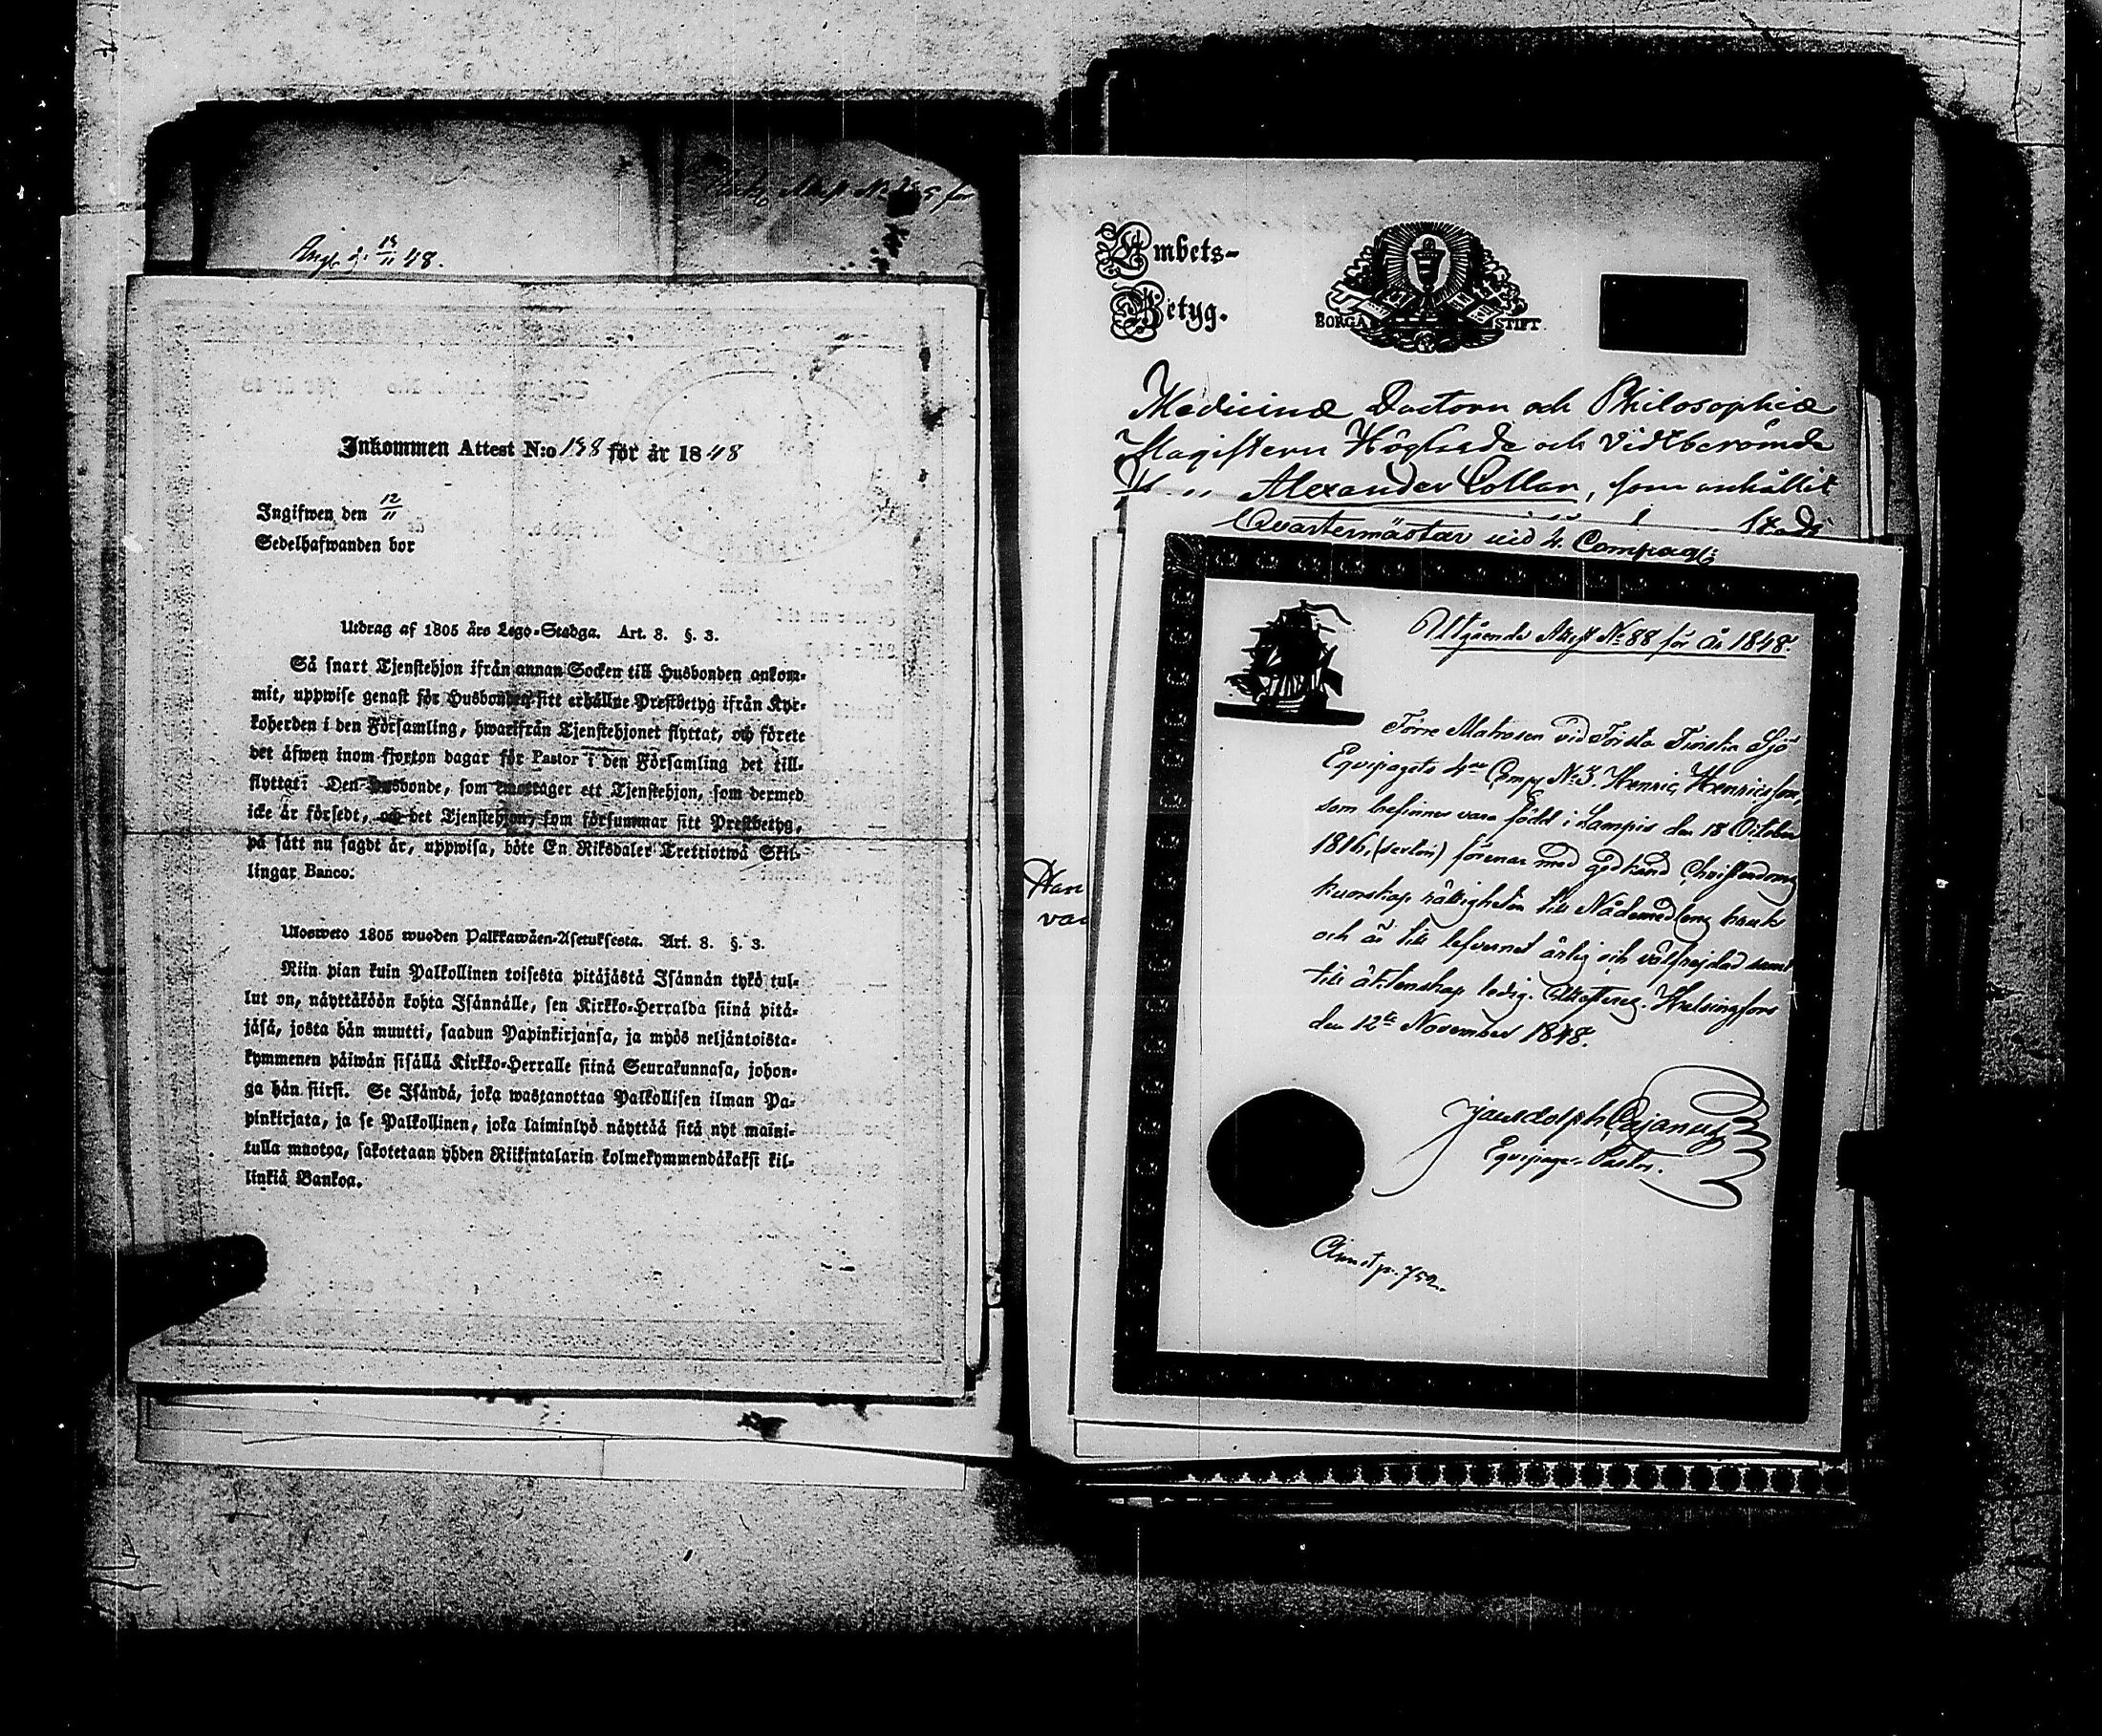 Angk. d. 13/11 48.
Attest No
Inkommen Attest N:o 138 för år 1848
Ingifwen den 12/11
Sedelhafwanden bor
Utdrag af 1805 års Lego-Stadga. Art. 8. §. 3.
Så snart Tjenstehjon ifrån annan Socken till Husbonden ankom-
mit, uppwise genast för Husbonden sitt erhållne Prestbetyg ifrån Kyr-
koherden i den Församling, hwarifrån Tjenstehjonet flyttat, och förete
det äfwen inom fjorton dagar för Pastor i den Församling det till-
flyttat: Den husbonde, som emottager ett Tjenstehjon, som dermed
icke är försedt, och det Tjenstehjon, som försummar sitt Prestbetyg,
på sätt nu sagdt är, uppwisa, böte En Riksdaler Trettiotwå Skil-
lingar Banco.
Ulosweto 1805 wuoden Palkkawäen-Asetuksesta. Art. 8. §. 3.
Niin pian kuin Palkollinen toisesta pitäjästä Isännän tykö tul-
lut on, näyttäköön kohta Isännälle, sen Kirkko-Herralda siinä pitä-
jäsä, josta hän muutti, saadun Papinkirjansa, ja myös neljäntoista-
kymmenen päiwän sisällä Kirkko-Herralle siinä Seurakunnasa, johon-
ga hän siirsi. Se Isändä, joka wastanottaa Palkollisen ilman Pa-
pinkirjata, ja se Palkollinen, joka laiminlyö näyttää sitä nyt maini-
tulla muotoa, sakotetaan yhden Riikintalarin kolmekymmendäkaksi kil-
linkiä Bankoa.
Embets-
Betyg.
BORGÅ STIFT
Medicinæ Doctorn och Philosophiæ
Magistern Höglärde och Vidtberömde
H. Alexander Collan, som anhållit
Stads
Quartermästar vid 4. Compagt:
Han
var
Utgående Attest No 88 för År 1848.
Förre Matrosen vid Första Finska Sjö
Equipagets 4de Comp. No 3. Henric Henricsson,
som befinnes vara född i Lampis den 18 October
1816, (sexton) förenar med godkänd Christendoms
kunskap rättigheten till Nådemedlens bruk
och är till lefvernet ärlig och välfrejdad samt
till äktenskap ledig. Attesterag. Helsingfors
den 12te November 1848.
Jac Adolph Cajanus
Equipage-Pastor.
Annot p. 752.